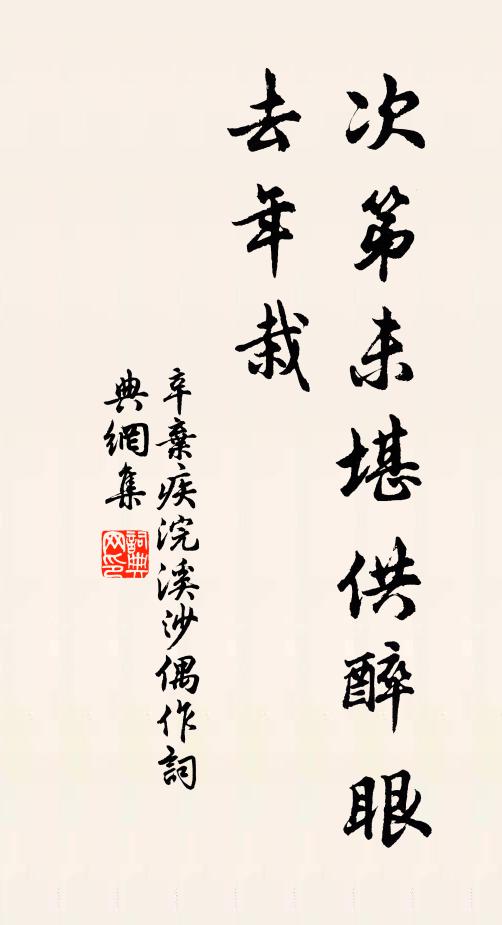 次第未堪供醉眼
去年栽
辛棄疾浣溪沙偶作詞
典網集
詞典網印